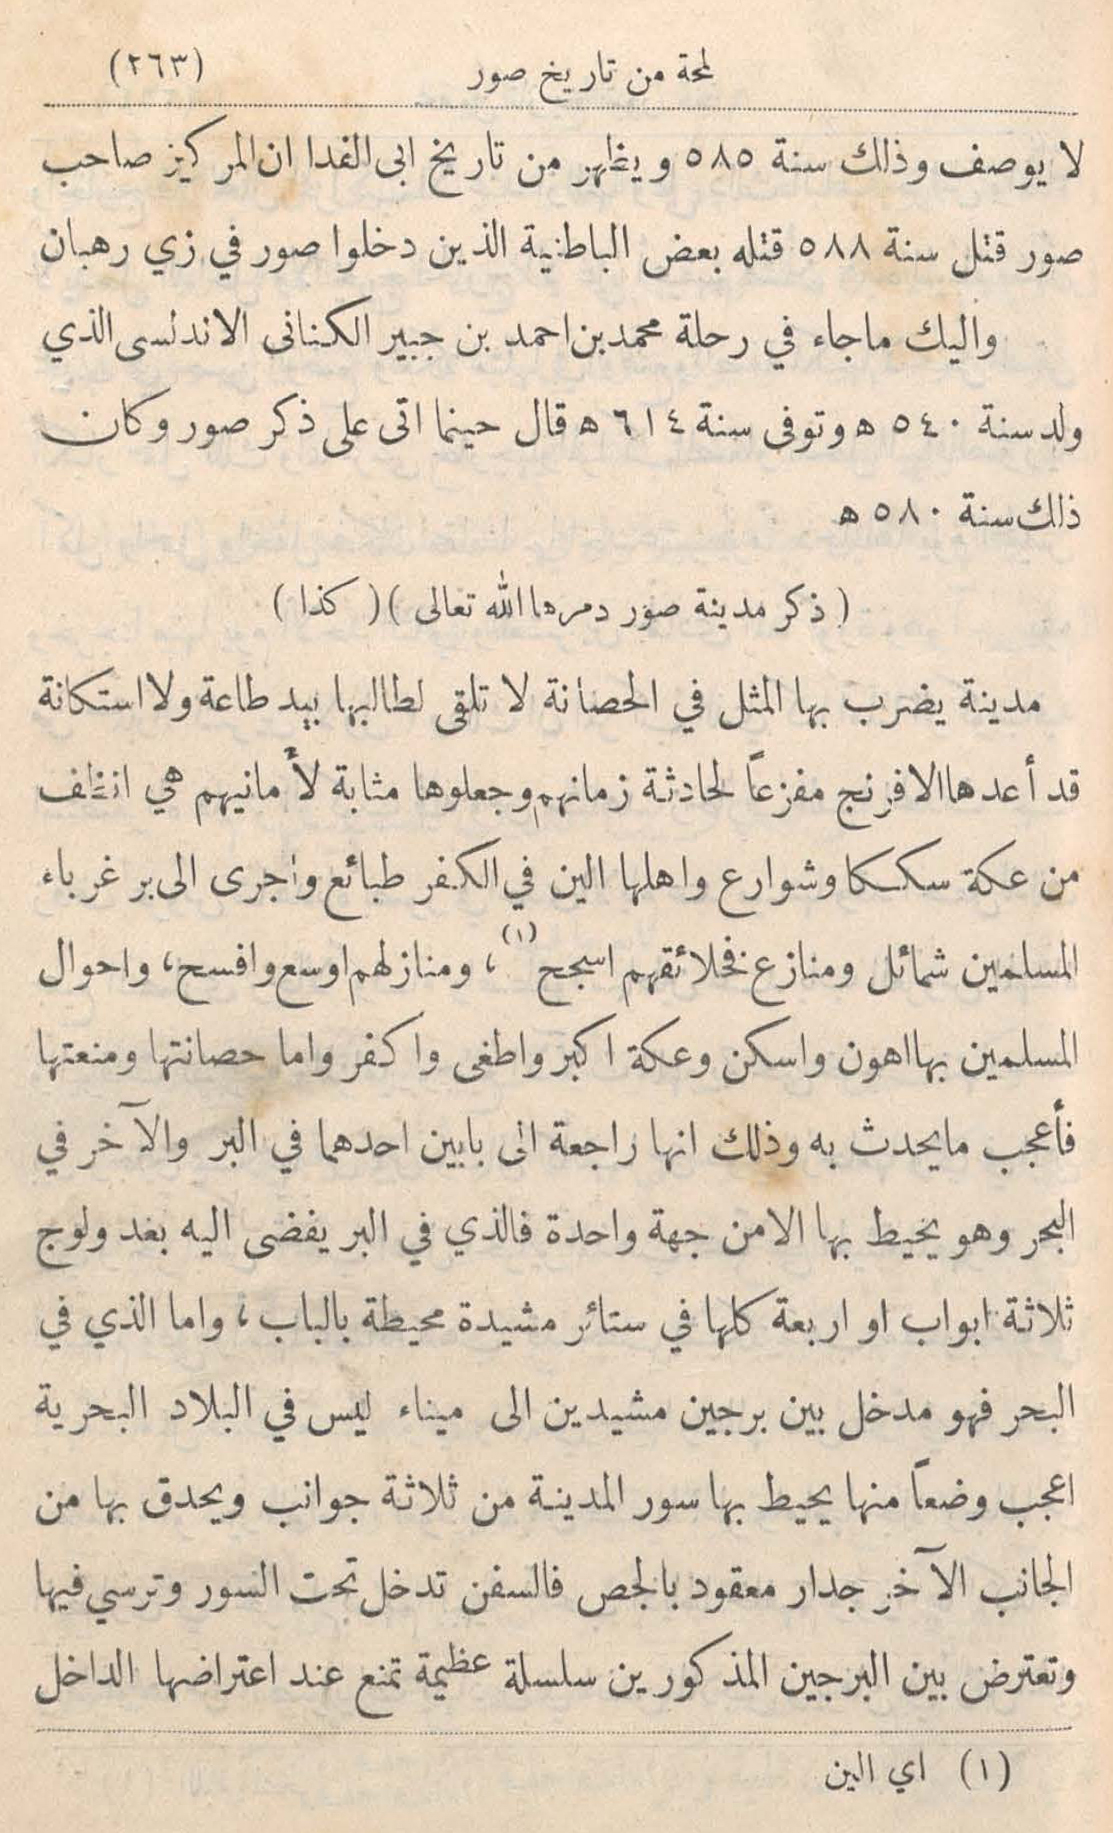 لمحة من تاريخ صور (٢٦٣)
لا يوصف وذلك سنة ٥٨٥ ويظهر من تاريخ ابى الفدا ان المركيز صاحب
صور قتل سنة ٥٨٨ قتله بعض الباطنية الذين دخلوا صور في زي رهبان
واليك ماجاء في رحلة محمد بن احمد بن جبير الكنانى الاندلسى الذي
ولد سنة ٥٤٠ ه وتوفى سنة ٦١٤ ه قال حينما اتى على ذكر صور وكان
ذلك سنة ٥٨٠ ه
( ذكر مدينة صور دمرها الله تعالى ) ( كذا )
مدينة يضرب بها المثل في الحصانة لا تلقى لطالبها بيد طاعة ولا استكانة
قد أعدها الافرنج مفزعاً لحادثة زمانهم وجعلوها مثابة لأمانيهم هي انظف
من عكة سككا وشوارع واهلها الين في الكفر طبائع واجرى الى بر غرباء
المسلمين شمائل ومنازع فخلائقهم اسجح (١) ، ومنازلهم اوسع وافسح ، واحوال
المسلمين بها اهون واسكن وعكة اكبر واطغى واكفر واما حصانتها ومنعتها
فأعجب مايحدث به وذلك انها راجعة الى بابين احدهما في البر والآخر في
البحر وهو يحيط بها الا من جهة واحدة فالذي في البر يفضى اليه بعد ولوج
ثلاثة ابواب او اربعة كلها في ستائر مشيدة محيطة بالباب ، واما الذي في
البحر فهو مدخل بين برجين مشيدين الى ميناء ليس في البلاد البحرية
اعجب وضعاً منها يحيط بها سور المدينة من ثلاثة جوانب ويحدق بها من
الجانب الآخر جدار معقود بالجص فالسفن تدخل تحت السور وترسي فيها
وتعترض بين البرجين المذكورين سلسلة عظيمة تمنع عند اعتراضها الداخل
(١) اي الين